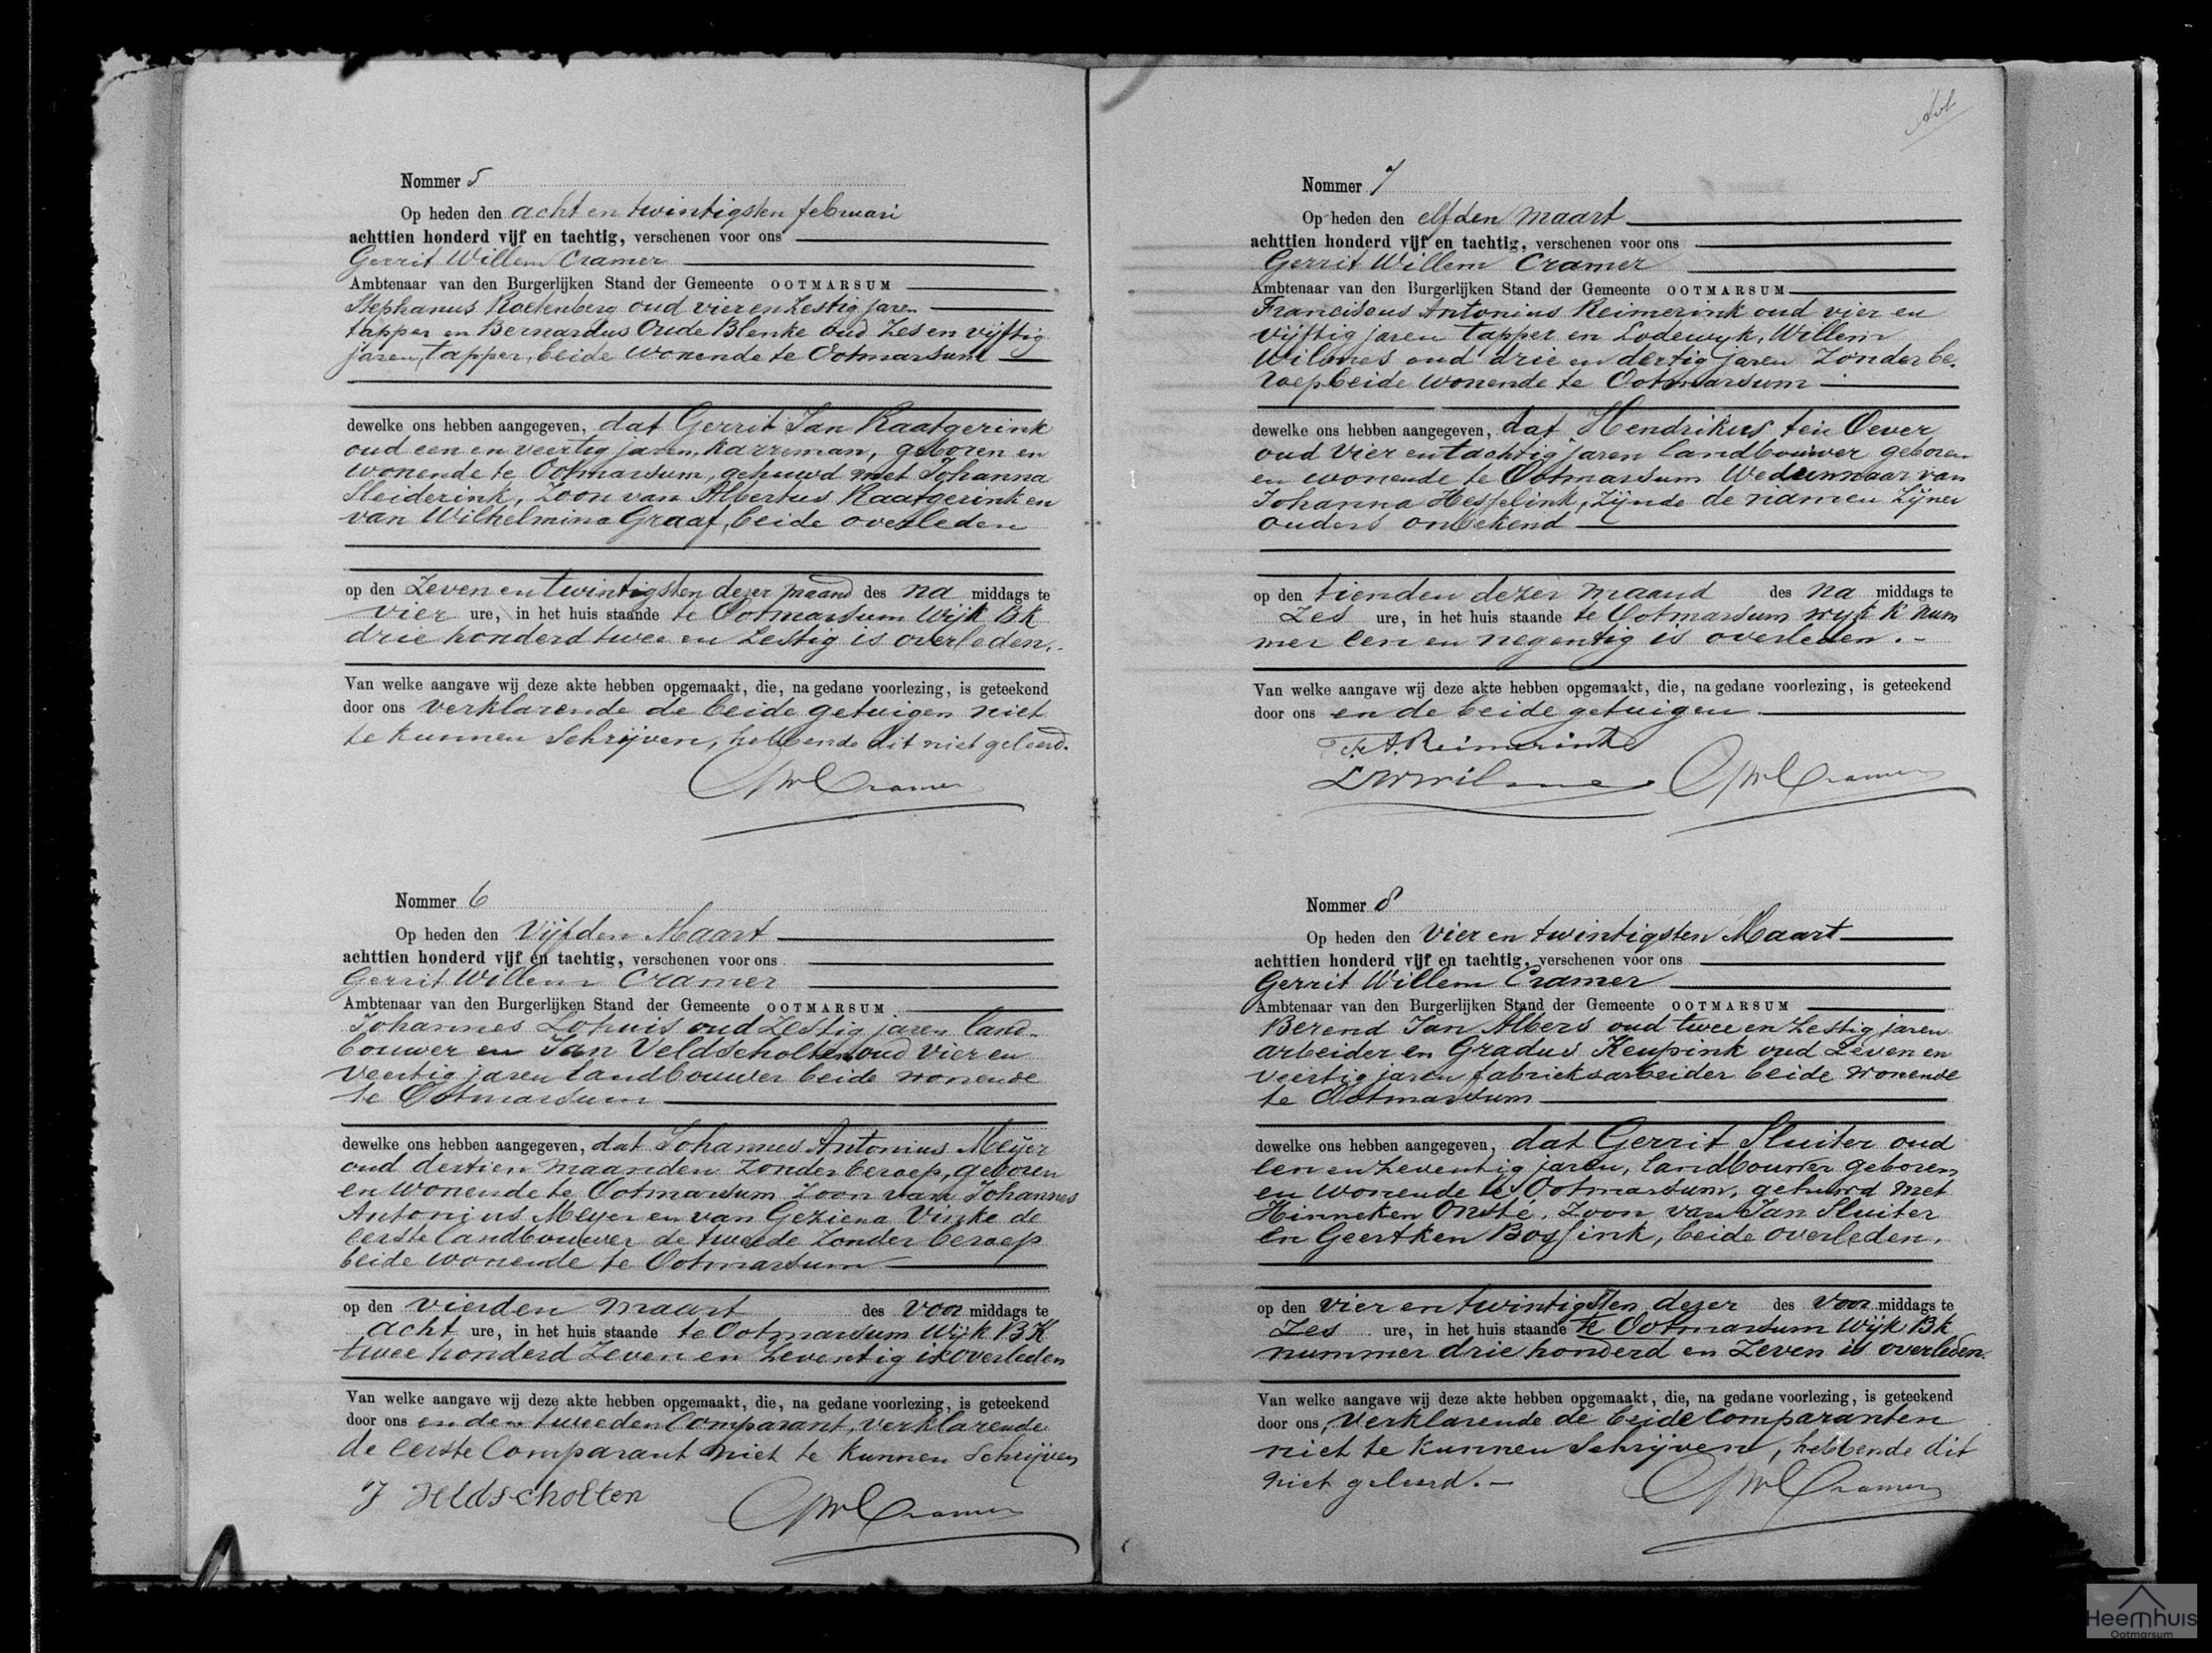 Nommer 5
Op heden den acht en twintigsten februari
achttien honderd vijf en tachtig, verschenen voor ons
Gerrit Willem Cramer
Ambtenaar van den Burgerlijken Stand der Gemeente OOTMARSUM
Stephanus Roetenberg oud vier en zestig jaren
tapper en Bernardus Oude Blenke oud zes en vijftig
jaren, tapper, beide wonende te Ootmarsum
dewelke ons hebben aangegeven, dat Gerrit Jan Raatgerink
oud een en veertig jaren, karreman, geboren en
wonende te Ootmarsum, gehuwd met Johanna
Sleiderink, zoon van Albertus Raatgerink en
van Wilhelmina Graaf, beide overleden
op den zeven en twintigsten dezer maand des na middags te
vier ure, in het huis staande te Ootmarsum Wijk BK
drie honderd twee en zestig is overleden.
Van welke aangave wij deze akte hebben opgemaakt, die, na gedane voorlezing, is geteekend
door ons verklarende de beide getuigen niet
te kunnen schrijven, hebbende dit niet geleerd.
GWCramer
Nommer 6
Op heden den Vijfden Maart
achttien honderd vijf en tachtig, verschenen voor ons
Gerrit Willem Cramer
Ambtenaar van den Burgerlijken Stand der Gemeente OOTMARSUM
Johannes Lohuis oud zestig jaren land-
bouwer en Jan Veldscholten oud vier en
veertig jaren landbouwer beide wonende
te Ootmarsum
dewelke ons hebben aangegeven, dat Johannes Antonius Meijer
oud dertien maanden zonder beroep, geboren
en wonende te Ootmarsum zoon van Johannes
Antonius Meyer en van Geziena Vinke de
eerste landbouwer de tweede zonder beroep
beide wonende te Ootmarsum
op den vierden maart des voor middags te
acht ure, in het huis staande te Ootmarsum Wijk BK
twee honderd zeven en zeventig is overleden
Van welke aangave wij deze akte hebben opgemaakt, die, na gedane voorlezing, is geteekend
door ons en den tweeden Comparant, verklarende
de eerste Comparant niet te kunnen schrijven
J Veldscholten
GWCramer
Nommer 7
Op heden den elfden maart
achttien honderd vijf en tachtig, verschenen voor ons
Gerrit Willem Cramer
Ambtenaar van den Burgerlijken Stand der Gemeente OOTMARSUM
Franciscus Antonius Reimerink oud vier en
vijftig jaren tapper en Lodewyk, Willem
Wilmes oud drie en dertig jaren zonder be-
roep beide wonende te Ootmarsum
dewelke ons hebben aangegeven, dat Hendrikus ten Oever
oud vier en tachtig jaren landbouwer geboren
en wonende te Ootmarsum Weduwnaar van
Johanna Hesselink, zijnde de namen zijner
ouders onbekend
op den tienden dezer maand des na middags te
zes ure, in het huis staande te Ootmarsum wyk K num
mer een en negentig is overleden.
Van welke aangave wij deze akte hebben opgemaakt, die, na gedane voorlezing, is geteekend
door ons en de beide getuigen
F.A. Reimerink
LWWilmes GWCramer
Nommer 8
Op heden den Vier en twintigsten Maart
achttien honderd vijf en tachtig, verschenen voor ons
Gerrit Willem Cramer
Ambtenaar van den Burgerlijken Stand der Gemeente OOTMARSUM
Berend Jan Albers oud twee en zestig jaren
arbeider en Gradus Keupink oud zeven en
veertig jaren fabrieksarbeider beide wonende
te Ootmarsum
dewelke ons hebben aangegeven, dat Gerrit Sluiter oud
een en zeventig jaren, landbouwer geboren
en wonende te Ootmarsum, gehuwd met
Hinneken Onste, zoon van Jan Sluiter
en Geertken Bossink, beide overleden.
op den vier en twintigsten dezer des voor middags te
zes ure, in het huis staande te Ootmarsum Wijk Bk
nummer drie honderd en zeven is overleden.
Van welke aangave wij deze akte hebben opgemaakt, die, na gedane voorlezing, is geteekend
door ons, verklarende de beide comparanten
niet te kunnen schrijven, hebbende dit
niet geleerd.
GWCramer
Heemhuis
Ootmarsum